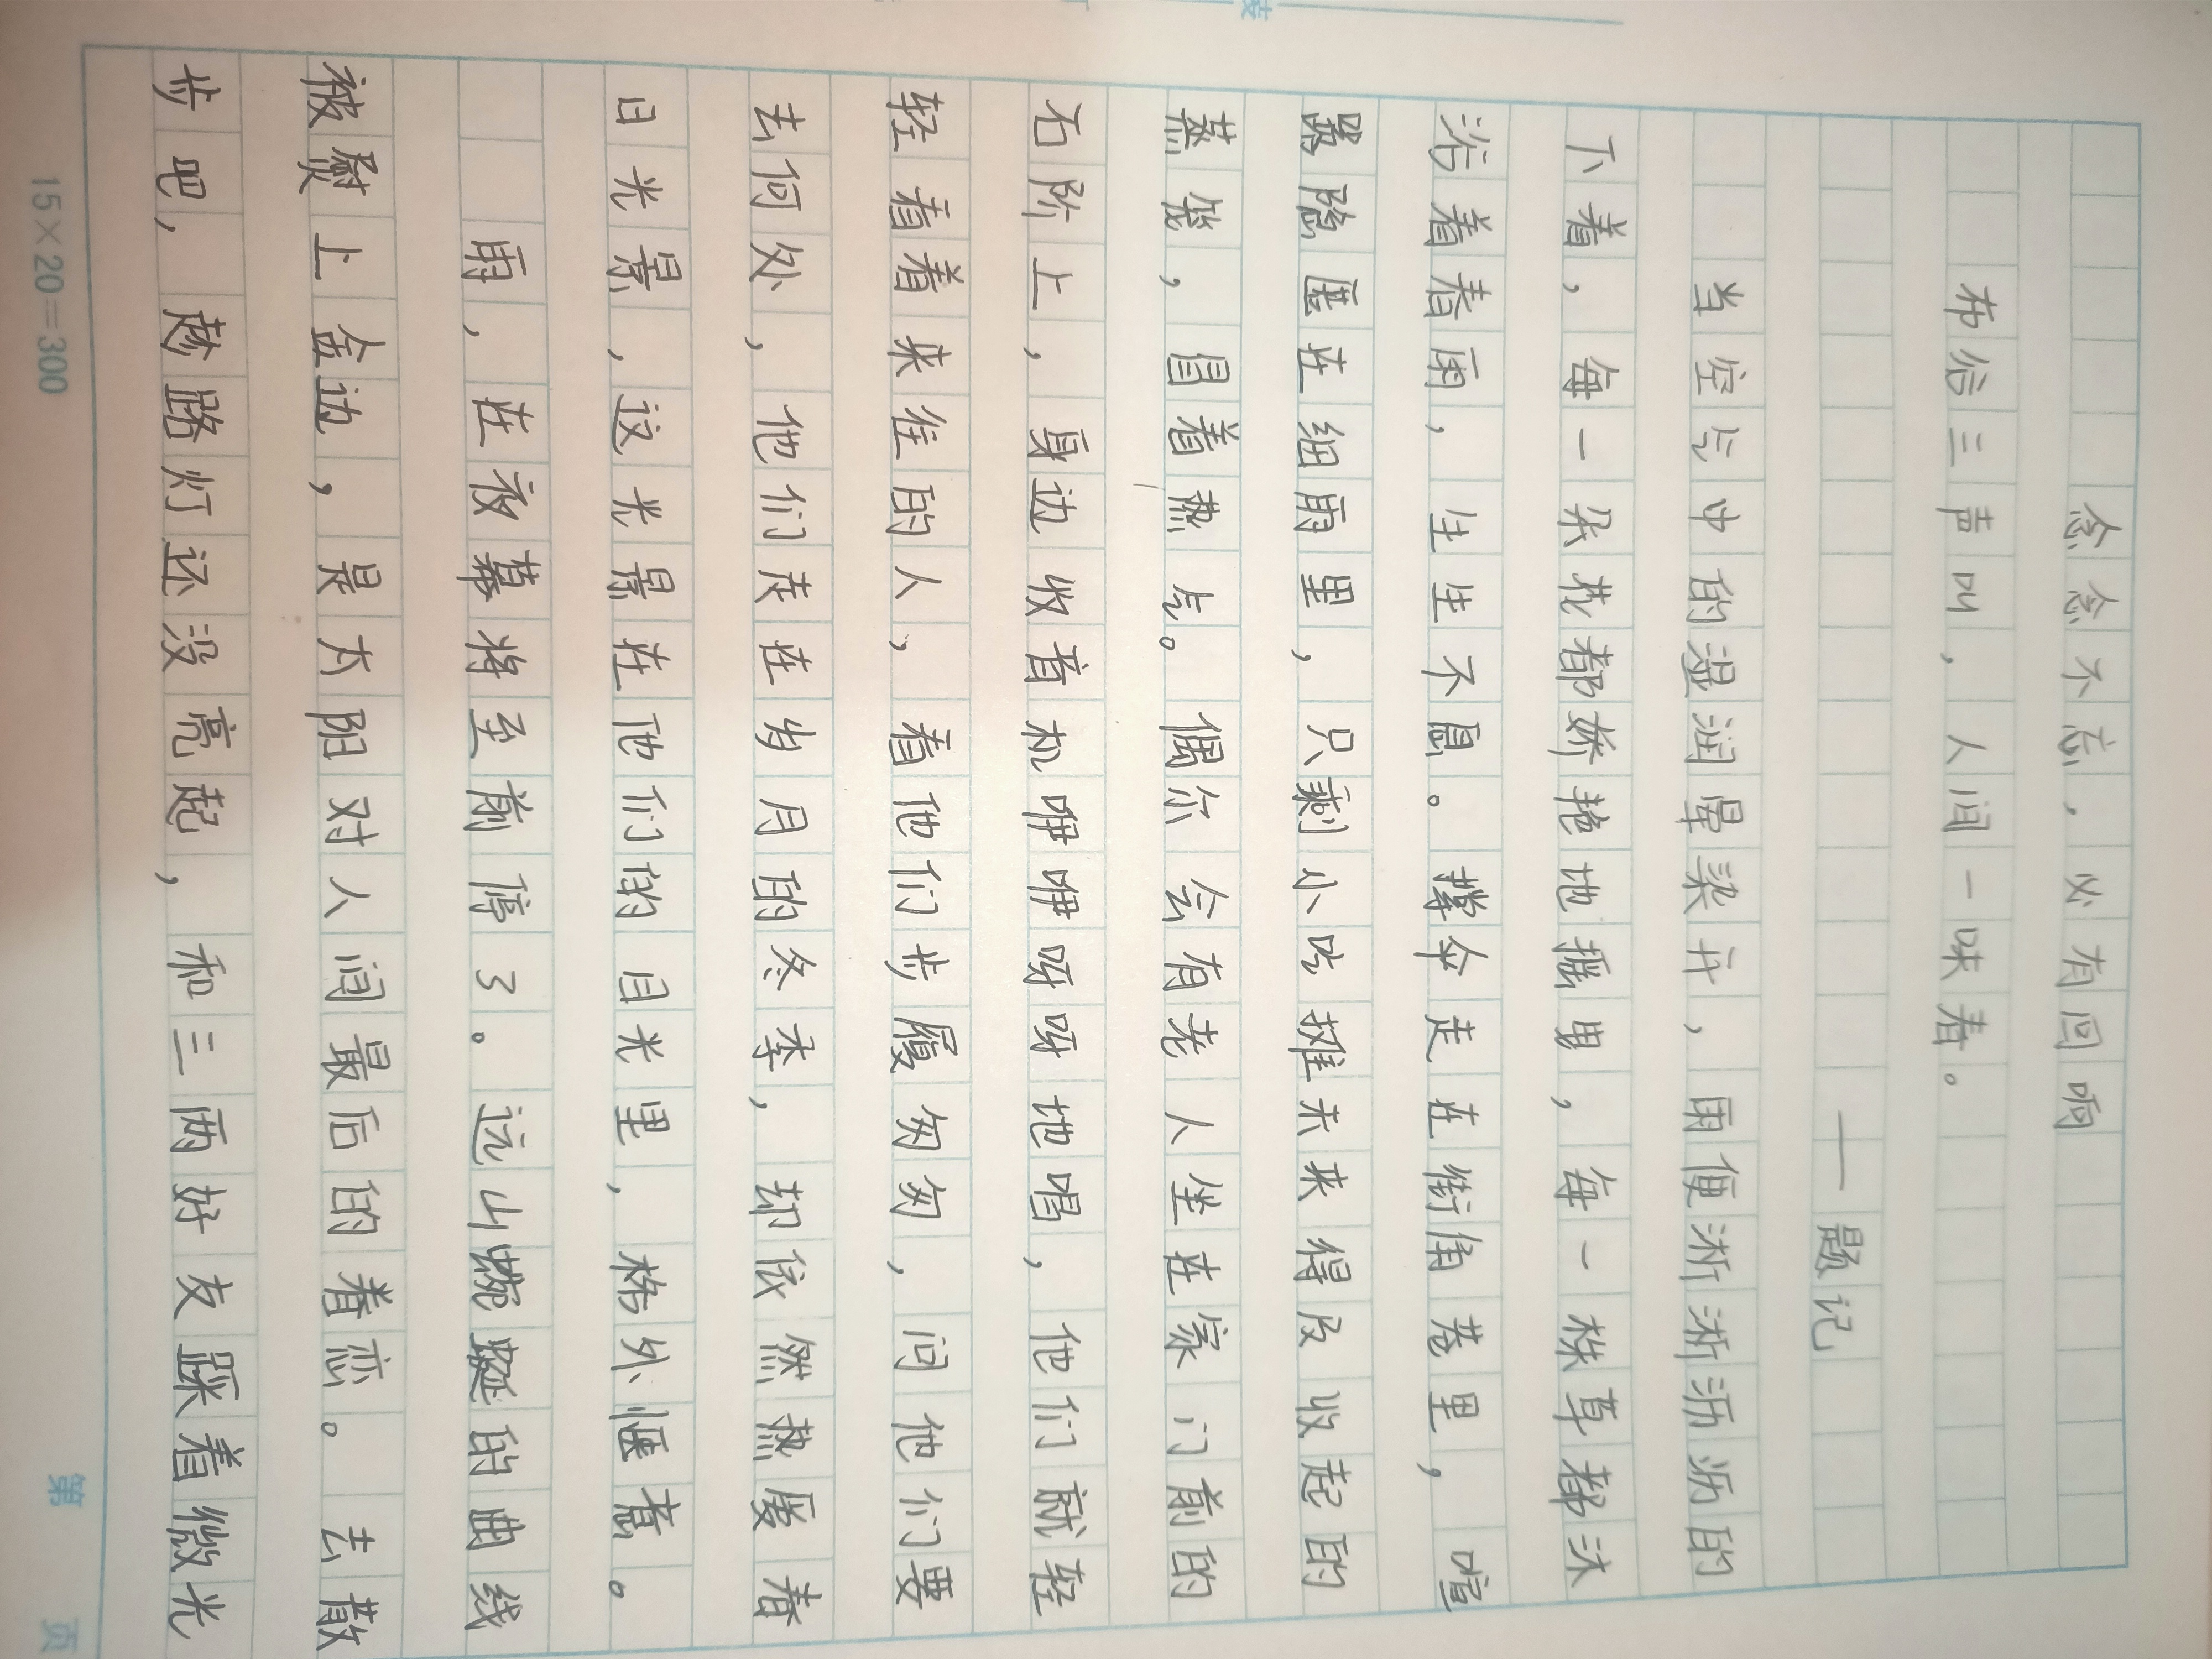 念念不忘，必有回响
布谷三声叫，人间一味春。
——题记
当空气中的湿润晕染开，雨便淅淅沥沥的
下着，每一朵花都娇艳地摇曳，每一株草都沐
浴着春雨，生生不息。撑伞走在街角巷里，喧
嚣隐匿在细雨里，只剩小吃摊未来得及收起的
蒸笼，冒着热气。偶尔会有老人坐在家门前的
石阶上，身边收音机咿咿呀呀地唱，他们就轻
轻看着来往的人，看他们步履匆匆，问他们要
去何处，他们走在岁月的冬季，却依然热爱春
日光景，这光景在他们的目光里，格外惬意。
雨，在夜幕将至前停了。远山蜿蜒的曲线
被熨上金边，是太阳对人间最后的眷恋。去散
步吧，趁路灯还没亮起，和三两好友踩着微光
15×20=300
第 页